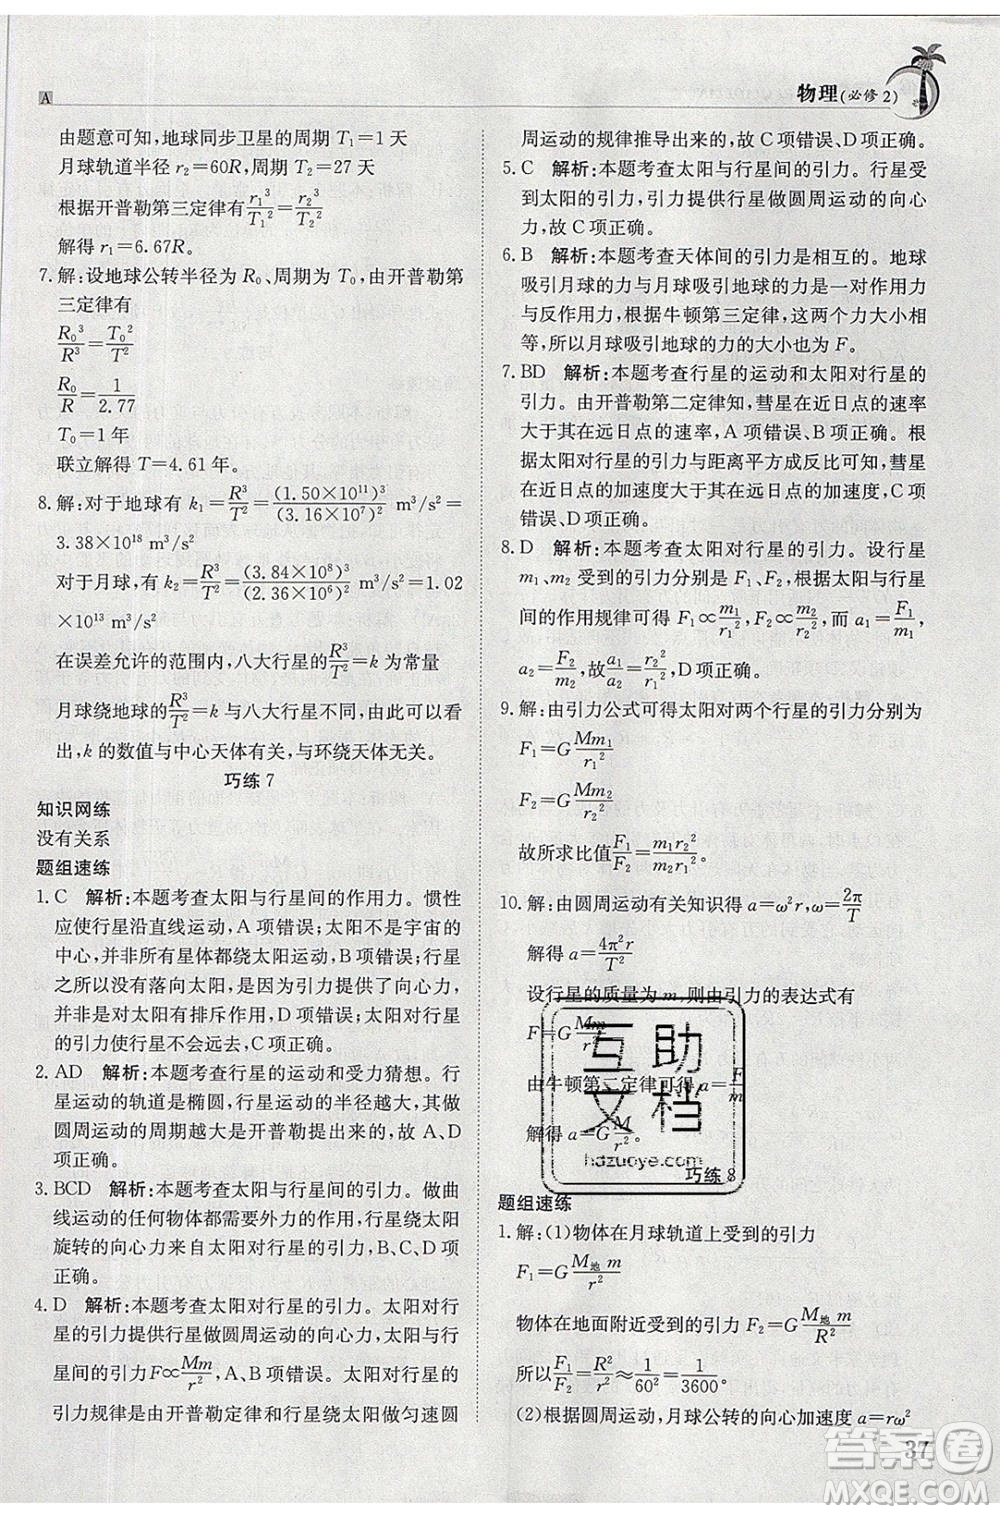 A
物理(必修2)
由题意可知,地球同步卫星的周期 T₁=1 天
月球轨道半径 r₂=60R,周期 T₂=27 天
根据开普勒第三定律有 r₁³/T₁²=r₂³/T₂²
解得 r₁=6.67R。
7. 解:设地球公转半径为 R₀、周期为 T₀,由开普勒第
三定律有
R₀³/R³=T₀²/T²
R₀/R=1/2.77
T₀=1 年
联立解得 T=4.61 年。
8. 解:对于地球有 k₁=R³/T²=(1.50×10¹¹)³/(3.16×10⁷)² m³/s²=
3.38×10¹⁸ m³/s²
对于月球有 k₂=R³/T²=(3.84×10⁸)³/(2.36×10⁶)² m³/s²=1.02
×10¹³ m³/s²
在误差允许的范围内,八大行星的 R³/T²=k 为常量
月球绕地球的 R³/T²=k 与八大行星不同,由此可以看
出,k 的数值与中心天体有关,与环绕天体无关。
巧练 7
知识网练
没有关系
题组速练
1. C 解析:本题考查太阳与行星间的作用力。惯性
应使行星沿直线运动,A 项错误;太阳不是宇宙的
中心,并非所有星体都绕太阳运动,B 项错误;行星
之所以没有落向太阳,是因为引力提供了向心力,
并非是对太阳有排斥作用,D 项错误;太阳对行星
的引力使行星不会远去,C 项正确。
2. AD 解析:本题考查行星的运动和受力猜想。行
星运动的轨道是椭圆,行星运动的半径越大,其做
圆周运动的周期越大是开普勒提出来的,故 A、D
项正确。
3. BCD 解析:本题考查太阳与行星间的引力。做曲
线运动的任何物体都需要外力的作用,行星绕太阳
旋转的向心力来自太阳对行星的引力,故 B、C、D
项正确。
4. D 解析:本题考查太阳对行星的引力。太阳对行
星的引力提供行星做圆周运动的向心力,太阳与行
星间的引力 F∝Mm/r²,A、B 项错误。太阳对行星的
引力规律是由开普勒定律和行星绕太阳做匀速圆
周运动的规律推导出来的,故 C 项错误、D 项正确。
5. C 解析:本题考查太阳与行星间的引力。行星受
到太阳的引力,引力提供行星做圆周运动的向心
力,故 C 项正确。
6. B 解析:本题考查天体间的引力是相互的。地球
吸引月球的力与月球吸引地球的力是一对作用力
与反作用力,根据牛顿第三定律,这两个力大小相
等,所以月球吸引地球的力的大小也为 F。
7. BD 解析:本题考查行星的运动和太阳对行星的
引力。由开普勒第二定律知,彗星在近日点的速率
大于其在远日点的速率,A 项错误、B 项正确;
根据太阳对行星的引力与距离平方成反比可知,彗星
在近日点的加速度大于其在远日点的加速度,C 项
错误、D 项正确。
8. D 解析:本题考查太阳对行星的引力。设行星
m₁、m₂ 受到的引力分别是 F₁、F₂,根据太阳与行星
间的作用规律可得 F₁∝m₁/r₁²,F₂∝m₂/r₂²,而 a₁=F₁/m₁,
a₂=F₂/m₂,故 a₁/a₂=r₂²/r₁²,D 项正确。
9. 解:由引力公式可得太阳对两个行星的引力分别为
F₁=G Mm₁/r₁²
F₂=G Mm₂/r₂²
故所求比值 F₁/F₂=m₁r₂²/m₂r₁²。
10. 解:由圆周运动有关知识得 a=ω²r,ω=2π/T
解得 a=4π²r/T²
设行星的质量为 m,则由引力的表达式有
F=G Mm/r²
由牛顿第二定律可得 a=F/m
解得 a=G M/r²。
巧练 8
题组速练
1. 解:(1)物体在月球轨道上受到的引力
F₁=G M地m/r²
物体在地面附近受到的引力 F₂=G M地m/R²
所以 F₁/F₂=R²/r²≈1/60²=1/3600。
(2)根据圆周运动,月球公转的向心加速度 a=rω²
37
互助
文档
hdzuoye.com
答案圈
MXQE.COM